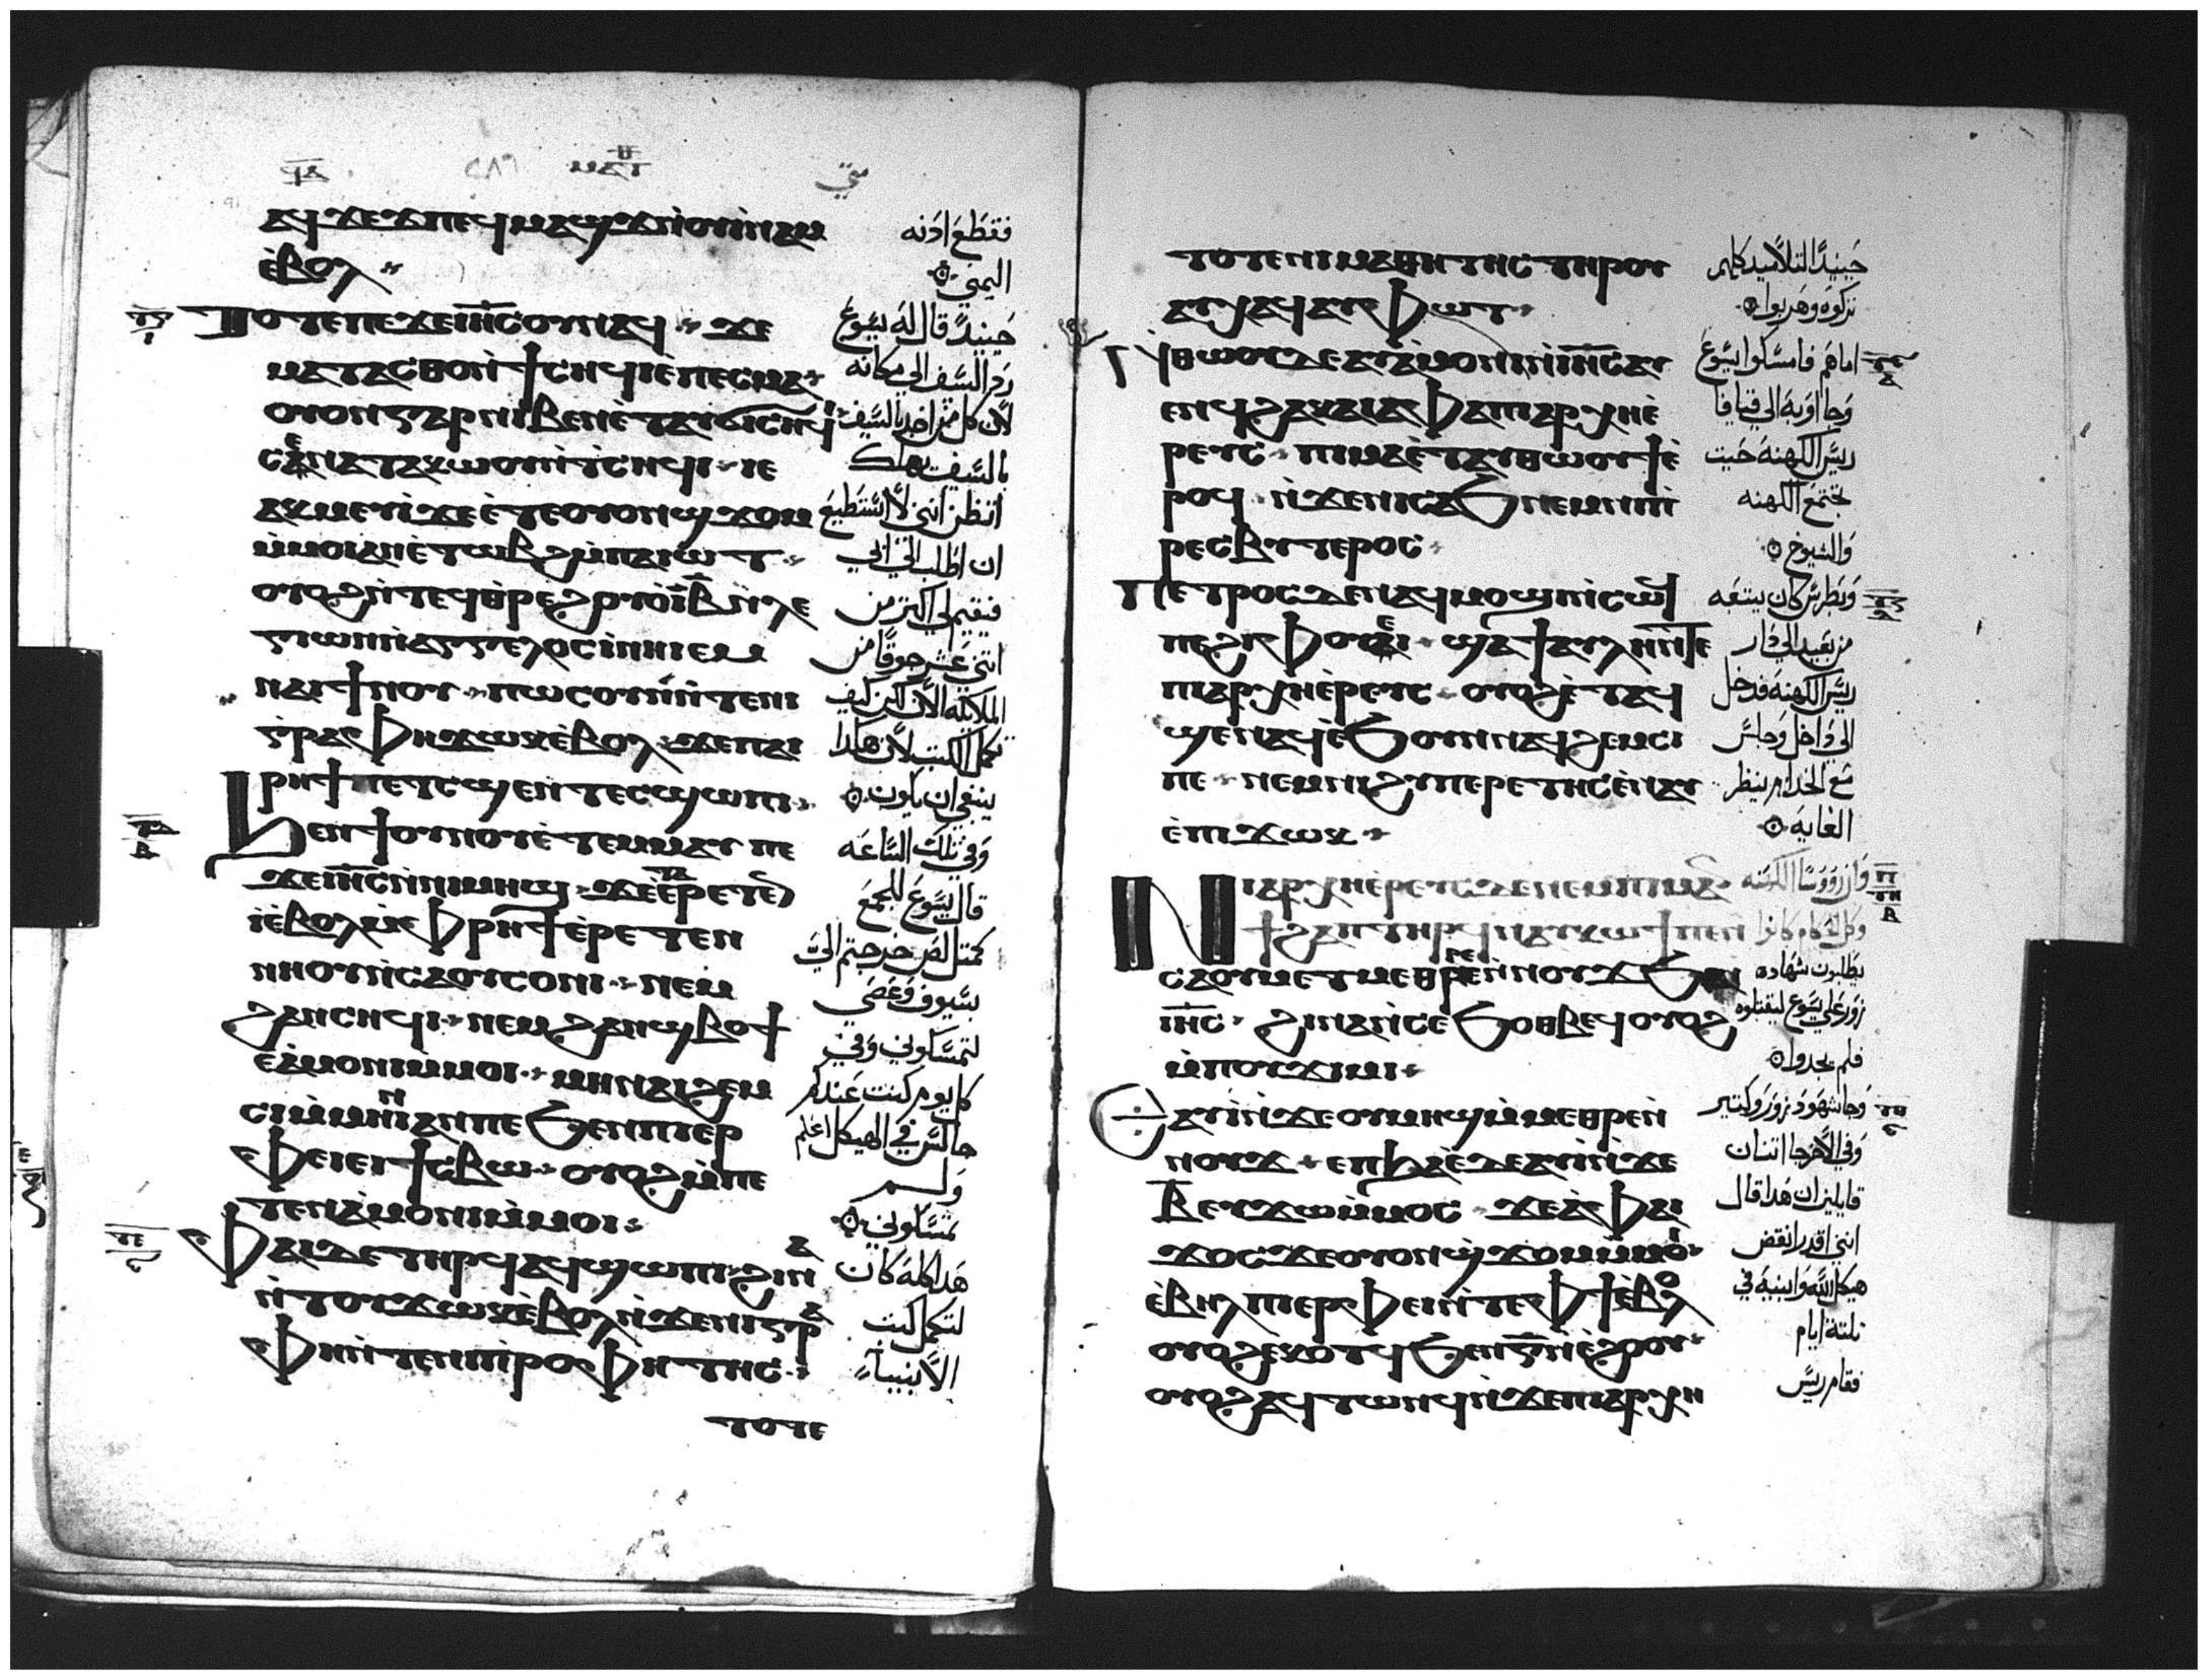 ϥⲁ ⲙⲁⲧⲑ متي
ⲁϥϫⲉⲗⲡⲉϥⲙⲁϣϫⲛ̀ⲟⲩⲓⲛⲁⲙ
ⲉ̀ⲃⲟⲗ
ⲧⲟⲧⲉⲡⲉϫⲉⲓⲏ̅ⲥ̅ⲟⲩⲛⲁϥ ϫⲉ
ⲙⲁⲧⲁⲥⲑⲟⲛ̀ϯⲥⲏϥⲓⲉ̀ⲡⲉⲥⲙⲁ
ⲟⲩⲟⲛⲅⲁⲣⲛⲓⲃⲉⲛⲉ̀ⲧⲁⲩϭⲓⲥⲏϥⲓ
ⲥⲉⲛⲁⲧⲁⲕⲱⲟⲩⲛ̀ⲧ̀ⲥⲏϥⲓ ⲓⲉ
ⲁⲕⲙⲉⲩⲓ̀ϫⲉⲉ̀ⲧⲉⲟⲩⲟⲛϣϫⲟⲙ
ⲙ̀ⲙⲟⲓⲁⲛⲉ̀ⲧⲱⲃϩⲙ̀ⲡⲁⲓⲱⲧ
ⲟⲩⲟϩⲛ̀ⲧⲉϥⲑ̀ⲣⲉϩⲟⲩⲟ̀ⲓ̅ⲃ̅ⲛ̀ⲗⲉ
ⲅⲓⲱⲛⲛ̀ⲁⲅⲅⲉⲗⲟⲥⲓ̀ⲛⲏⲓⲉⲙ
ⲛⲁⲓϯⲛⲟⲩ ⲡⲱⲥⲟⲩⲛⲛ̀ⲧⲉⲛⲓ
ⲅ̀ⲣⲁⲫⲏϫⲱⲕⲉ̀ⲃⲟⲗ ϫⲉⲡⲁⲓ
ⲣⲏϯⲡⲉⲧⲥϣⲉⲛ̀ⲧⲉⲥϣⲱⲡⲓ
ϧⲉⲛϯⲟⲩⲛⲟⲩⲉ̀ⲧⲉⲙⲙⲁⲩ ⲡⲉ
ϫⲉⲓⲏ̅ⲥ̅ⲛ̀ⲛⲓⲙⲏϣ ϫⲉⲉ̀ⲣⲉⲧⲉ
ⲓ̀ⲉ̀ⲃⲟⲗⲙ̀ⲫⲣⲏϯⲉ̀ⲣⲉⲧⲉⲛ
ⲛⲏⲟⲩⲛ̀ⲥⲁⲟⲩⲥⲟⲛⲓ ⲛⲉⲙ
ϩⲁⲛⲥⲏϥⲓ ⲛⲉⲙϩⲁⲛϣⲃⲟϯ
ⲉⲁ̀ⲙⲟⲛⲓⲙ̀ⲙⲟⲓ ⲙⲏⲛⲁⲓϩⲉⲙ
ⲥⲓⲙ̀ⲙⲏⲛⲓⲁⲛⲡⲉϧⲉⲛⲡⲓⲉⲣ
ⲫⲉⲓⲉⲓϯⲥⲃⲱ ⲟⲩⲟϩⲙ̀ⲡⲉ
ⲧⲉⲛⲁ̀ⲙⲟⲛⲓⲙ̀ⲙⲟⲓ
ⲫⲁⲓⲇⲉⲧⲏⲣϥⲁϥϣⲱⲡⲓ ϩⲓⲛⲁ
ⲛ̀ⲧⲟⲩϫⲱⲕⲉ̀ⲃⲟⲗⲛ̀ϫⲉⲛⲓⲅⲣⲁ
ⲫⲏⲛ̀ⲧⲉⲛⲓⲡ̀ⲣⲟⲫⲏⲧⲏⲥ
ⲧⲟⲧⲉ
فقطع ادنه
اليمني
حينيدً قال له يسوع
رد السيف الي مكانه
لان كل من اخذ بالسيف
بالسيف يهلك
اتظن انني لا استطيع
ان اطلب الي ابي
فيقيم لي اكتر من
اتني عشر جوقا من
الملايكه الان لكن كيف
تكمل الكتب لان هكدا
ينبغي ان يكون
وفي تلك الساعه
قال يسوع للجمع
كمتل لص خرجتم اليّ
بسيوف وعصي
لتمسكوني وفي
كل يوم كنت عندكم
جالس في الهيكل اعلم
ولم
تمسكوني
هدا كله كان
لتكمل كتب
الانبيآء
ⲧⲟⲧⲉⲛⲓⲙⲁⲑⲏⲧⲏⲥ ⲧⲏⲣⲟⲩ
ⲁⲩⲭⲁϥⲁⲩⲫⲱⲧ
ⲛ̀ⲑⲱⲟⲩⲇⲉⲁⲩⲁ̀ⲙⲟⲛⲓⲛ̀ⲓⲏ̅ⲥ̅ⲁⲩ
ⲉⲛϥϩⲁⲕⲁⲓⲁⲫⲁⲡⲓⲁⲣⲭⲏⲉ̀
ⲣⲉⲩⲥ ⲡⲓⲙⲁⲉ̀ⲧⲁⲩⲑⲱⲟⲩϯⲉ̀
ⲣⲟϥ ⲛ̀ϫⲉⲛⲓⲥⲁϧⲛⲉⲙⲛⲓⲡ̀
ⲣⲉⲥⲃⲩⲧⲉⲣⲟⲥ
ⲡⲉⲧⲣⲟⲥⲇⲉⲛⲁϥⲙⲟϣⲓⲛ̀ⲥⲱϥ
ⲡⲉϩⲓⲫⲟⲩⲉⲓ ϣⲁϯⲁⲩⲗⲏⲛ̀ⲧⲉ
ⲡⲓⲁⲣⲭⲏⲉ̀ⲣⲉⲩⲥ ⲟⲩⲟϩⲉ̀ⲧⲁϥ
ϣⲉⲛⲁϥⲉ̀ϧⲟⲩⲛⲛⲁϥϩⲉⲙⲥⲓ
ⲡⲉ ⲛⲉⲙⲛⲓϩⲩⲡⲉⲣⲉⲧⲏⲥⲉ̀ⲛⲁⲩ
ⲉ̀ⲡⲓϫⲱⲕ
ⲛⲓⲁⲣⲭⲏⲉ̀ⲣⲉⲩⲥⲇⲉⲛⲉⲙⲡⲓⲙⲁ
ⲛϯϩⲁⲡⲧⲏⲣϥⲛⲁⲩⲕⲱϯⲡⲉⲛ
ⲥⲁⲟⲩⲙⲉⲧⲙⲉⲑⲣⲉⲛ̀ⲛⲟⲩϫϧⲁ
ⲓⲏ̅ⲥ̅ ϩⲓⲛⲁⲛ̀ⲥⲉϧⲟⲑⲃⲉϥⲟⲩⲟϩ
ⲙ̀ⲡⲟⲩϫⲓⲙⲓ
ⲉⲁⲩⲓ̀ⲛ̀ϫⲉⲟⲩⲙⲏϣⲙ̀ⲙⲉⲑⲣⲉⲛ̀
ⲛⲟⲩϫ ⲉⲡϧⲁⲉ̀ⲇⲉⲁⲩⲓ̀ⲛ̀ϫⲉ
ⲃ̅ⲉⲩϫⲱⲙ̀ⲙⲟⲥ ϫⲉⲁ̀ⲫⲁⲓ
ϫⲟⲥϫⲉⲟⲩⲟⲛϣ̀ϫⲟⲙⲙ̀ⲙⲟⲓ
ⲉ̀ⲃⲏⲗⲡⲓⲉⲣⲫⲉⲓⲛ̀ⲧⲉⲫϯⲉ̀ⲃⲟⲗ
ⲟⲩⲟϩⲉ̀ⲕⲟⲧϥϧⲉⲛⲅ̅ⲛ̀ⲉ̀ϩⲟⲟⲩ
ⲟⲩⲟϩⲁϥⲧⲱⲛϥⲛ̀ϫⲉⲡⲓⲁⲣⲭⲏ
حينيدً التلاميد كلهم
تركوه وهربوا
اما هم فامسكوا يسوع
وجاوا به الي قيافا
ريس الكهنه حيت
تجتمع الكهنه
والشيوخ
وبطرس كان يتبعه
من بعيد الي دار
ريس الكهنه فدخل
الي داخل وجلس
مع الخدام لينظر
الغايه
وان روسا الكهنه
وكل الحكام كانوا
يطلبون شهاده
زور علي يسوع ليقتلوه
فلم يجدوا
وجا شهود زور وكتير
وفي الاخر جا اتنان
قايلين ان هدا قال
انني اقدر انقض
هيكل الله وابنيه في
تلتة ايام
فقام ريس